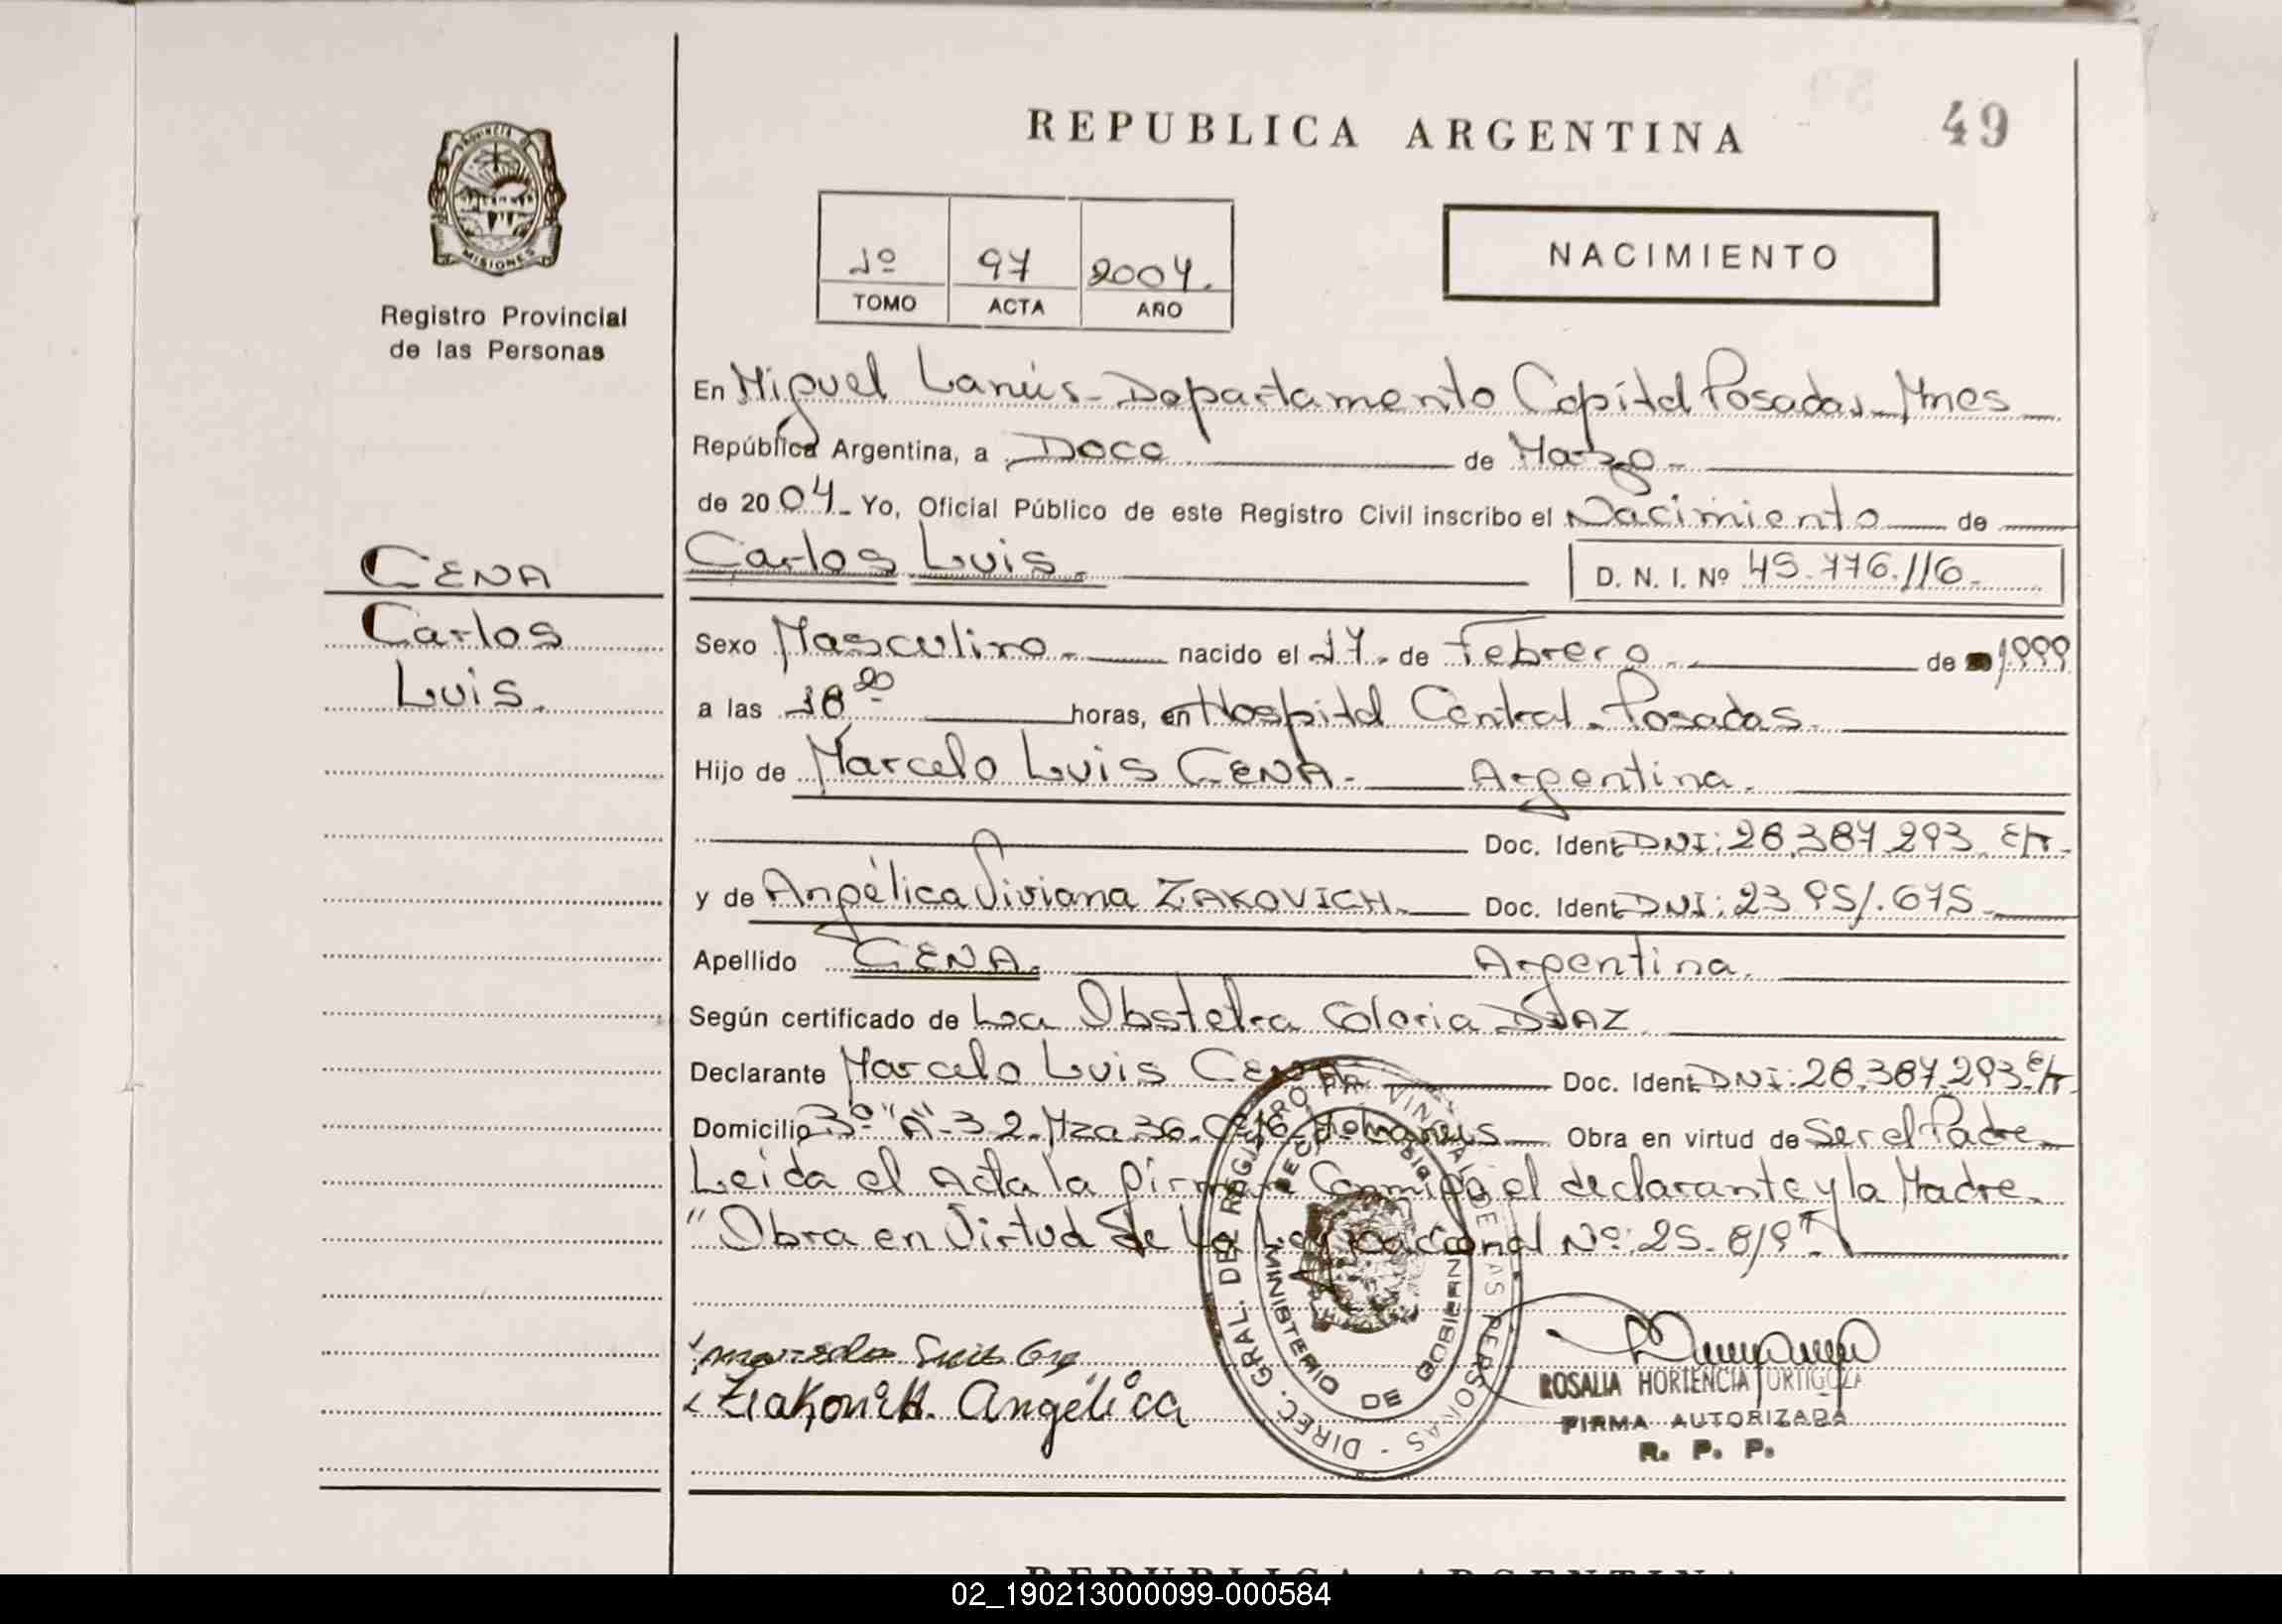 REPUBLICA ARGENTINA
49
PROVINCIA DE
MISIONES
Registro Provincial
de las Personas
1º 97 2004.
TOMO ACTA AÑO
NACIMIENTO
En Miguel Lanús - Departamento Capital Posadas - Mnes
República Argentina, a Doce de Marzo
de 2004. Yo, Oficial Público de este Registro Civil inscribo el Nacimiento de
CENA
Carlos Luis.
D. N. I. Nº 45.776.116.
Carlos
Luis.
Sexo Masculino. nacido el 17. de Febrero. de 1999
a las 18 20 horas, en Hospital Central. Posadas.
Hijo de Marcelo Luis CENA. Argentina.
Doc. Ident. DNI: 28.387.293. E/T.
y de Angélica Viviana ZAKOVICH. Doc. Ident. DNI: 23.951.675.
Apellido CENA. Argentina.
Según certificado de La Obstetra Gloria DIAZ
Declarante Marcelo Luis CENA Doc. Ident. DNI: 28.387.293. E/T.
Domicilio 3º "A" - 32. Mza 36. Obra en virtud de Ser el Padre
Leida el Acta la firman Conmigo el declarante y la Madre.
"Obra en Virtud de La Ley Nacional Nº: 25.819"
DIREC. GRAL. DEL REGISTRO PROVINCIAL DE LAS PERSONAS
MINISTERIO DE GOBIERNO
Marcelo Luis
Zakovich Angélica
ROSALIA HORTENCIA ORTIGOZA
FIRMA AUTORIZADA
R. P. P.
REPUBLICA ARGENTINA
02_190213000099-000584